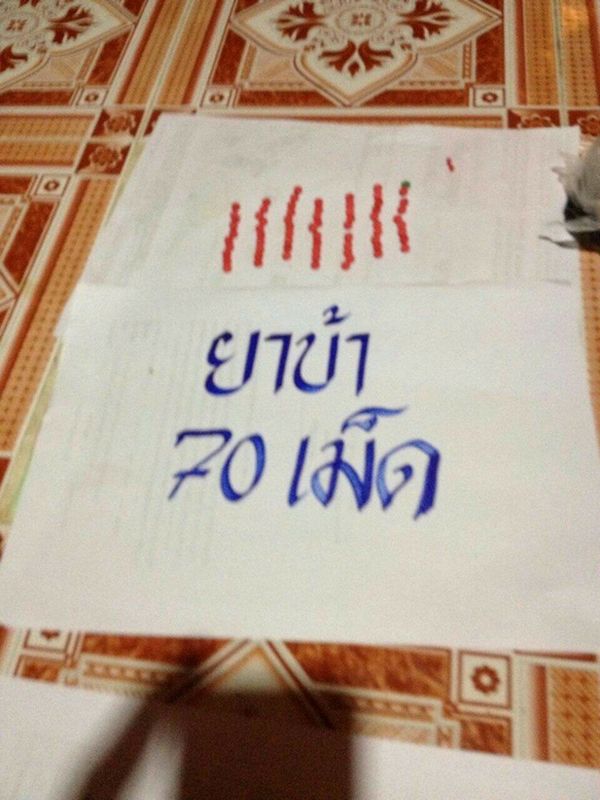 ยาบ้า
70 เม็ด